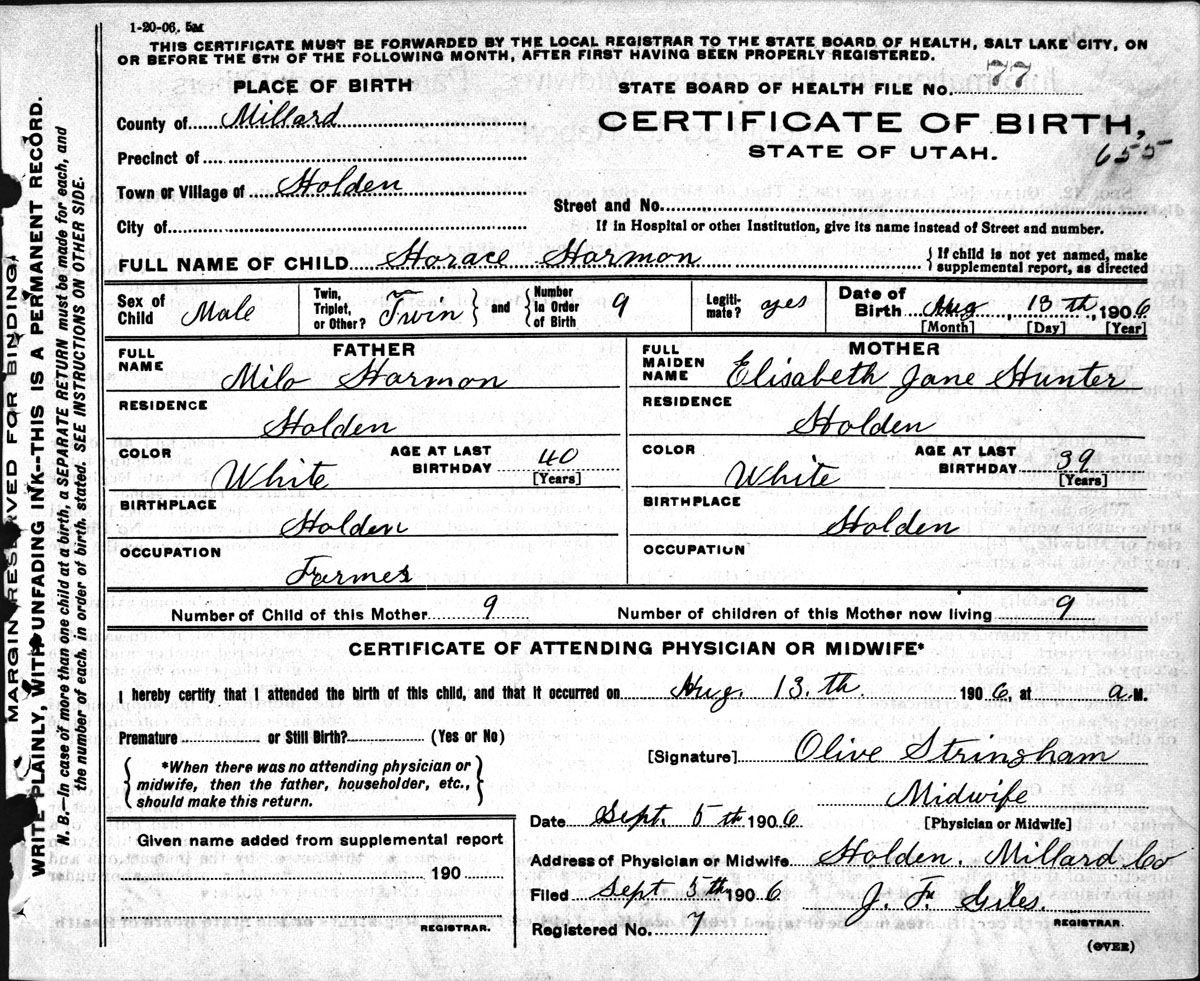 1-20-06. 5M
THIS CERTIFICATE MUST BE FORWARDED BY THE LOCAL REGISTRAR TO THE STATE BOARD OF HEALTH, SALT LAKE CITY, ON
OR BEFORE THE 5TH OF THE FOLLOWING MONTH, AFTER FIRST HAVING BEEN PROPERLY REGISTERED.
PLACE OF BIRTH
STATE BOARD OF HEALTH FILE No. 77
County of Millard
CERTIFICATE OF BIRTH,
STATE OF UTAH.
655
Precinct of
Town or Village of Holden
Street and No.
City of
If in Hospital or other Institution, give its name instead of Street and number.
FULL NAME OF CHILD Horace Harmon
{If child is not yet named, make
supplemental report, as directed
Sex of Child Male
Twin, Triplet, or Other? Twin
and
Number In Order of Birth 9
Legiti-mate? yes
Date of Birth Aug, 13th, 1906
[Month] [Day] [Year]
FATHER
FULL NAME
Milo Harmon
MOTHER
FULL MAIDEN NAME
Elisabeth Jane Hunter
RESIDENCE
Holden
RESIDENCE
Holden
COLOR
White
AGE AT LAST BIRTHDAY 40
[Years]
COLOR
White
AGE AT LAST BIRTHDAY 39
[Years]
BIRTHPLACE
Holden
BIRTHPLACE
Holden
OCCUPATION
Farmer
OCCUPATION
Number of Child of this Mother 9
Number of children of this Mother now living 9
CERTIFICATE OF ATTENDING PHYSICIAN OR MIDWIFE*
I hereby certify that I attended the birth of this child, and that it occurred on Aug. 13.th 1906, at a.M.
Premature or Still Birth? (Yes or No)
[Signature] Olive Stringham
{*When there was no attending physician or
midwife, then the father, householder, etc.,
should make this return.}
Midwife
[Physician or Midwife]
Date Sept. 5th 1906
Given name added from supplemental report
190
REGISTRAR.
Address of Physician or Midwife Holden. Millard Co
Filed Sept 5th 1906
J. F. Giles.
REGISTRAR.
Registered No. 7
(OVER)
MARGIN RESERVED FOR BINDING.
WRITE PLAINLY, WITH UNFADING INK--THIS IS A PERMANENT RECORD.
N. B.--In case of more than one child at a birth, a SEPARATE RETURN must be made for each, and
the number of each, in order of birth, stated. SEE INSTRUCTIONS ON OTHER SIDE.